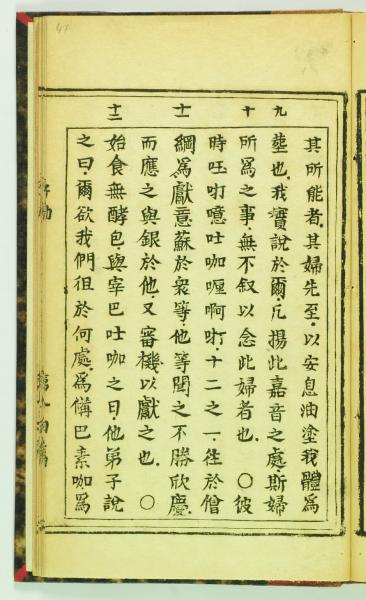 九
十
十一
十二
其所能者.其婦先至.以安息油塗我體爲
塟也.我實說於爾.凡揚此嘉音之處.斯婦
所爲之事.無不叙以念此婦者也.○彼
時呸叮噫吐咖喱啊叮.十二之一.徃於僧
綱爲獻意蘇於衆等.他等聞之不勝欣慶.
而應之與銀於他.又審機以獻之也.○
始食無酵包.與宰巴吐咖之日.他弟子說
之曰.爾欲我們徂於何處.爲備巴素咖爲